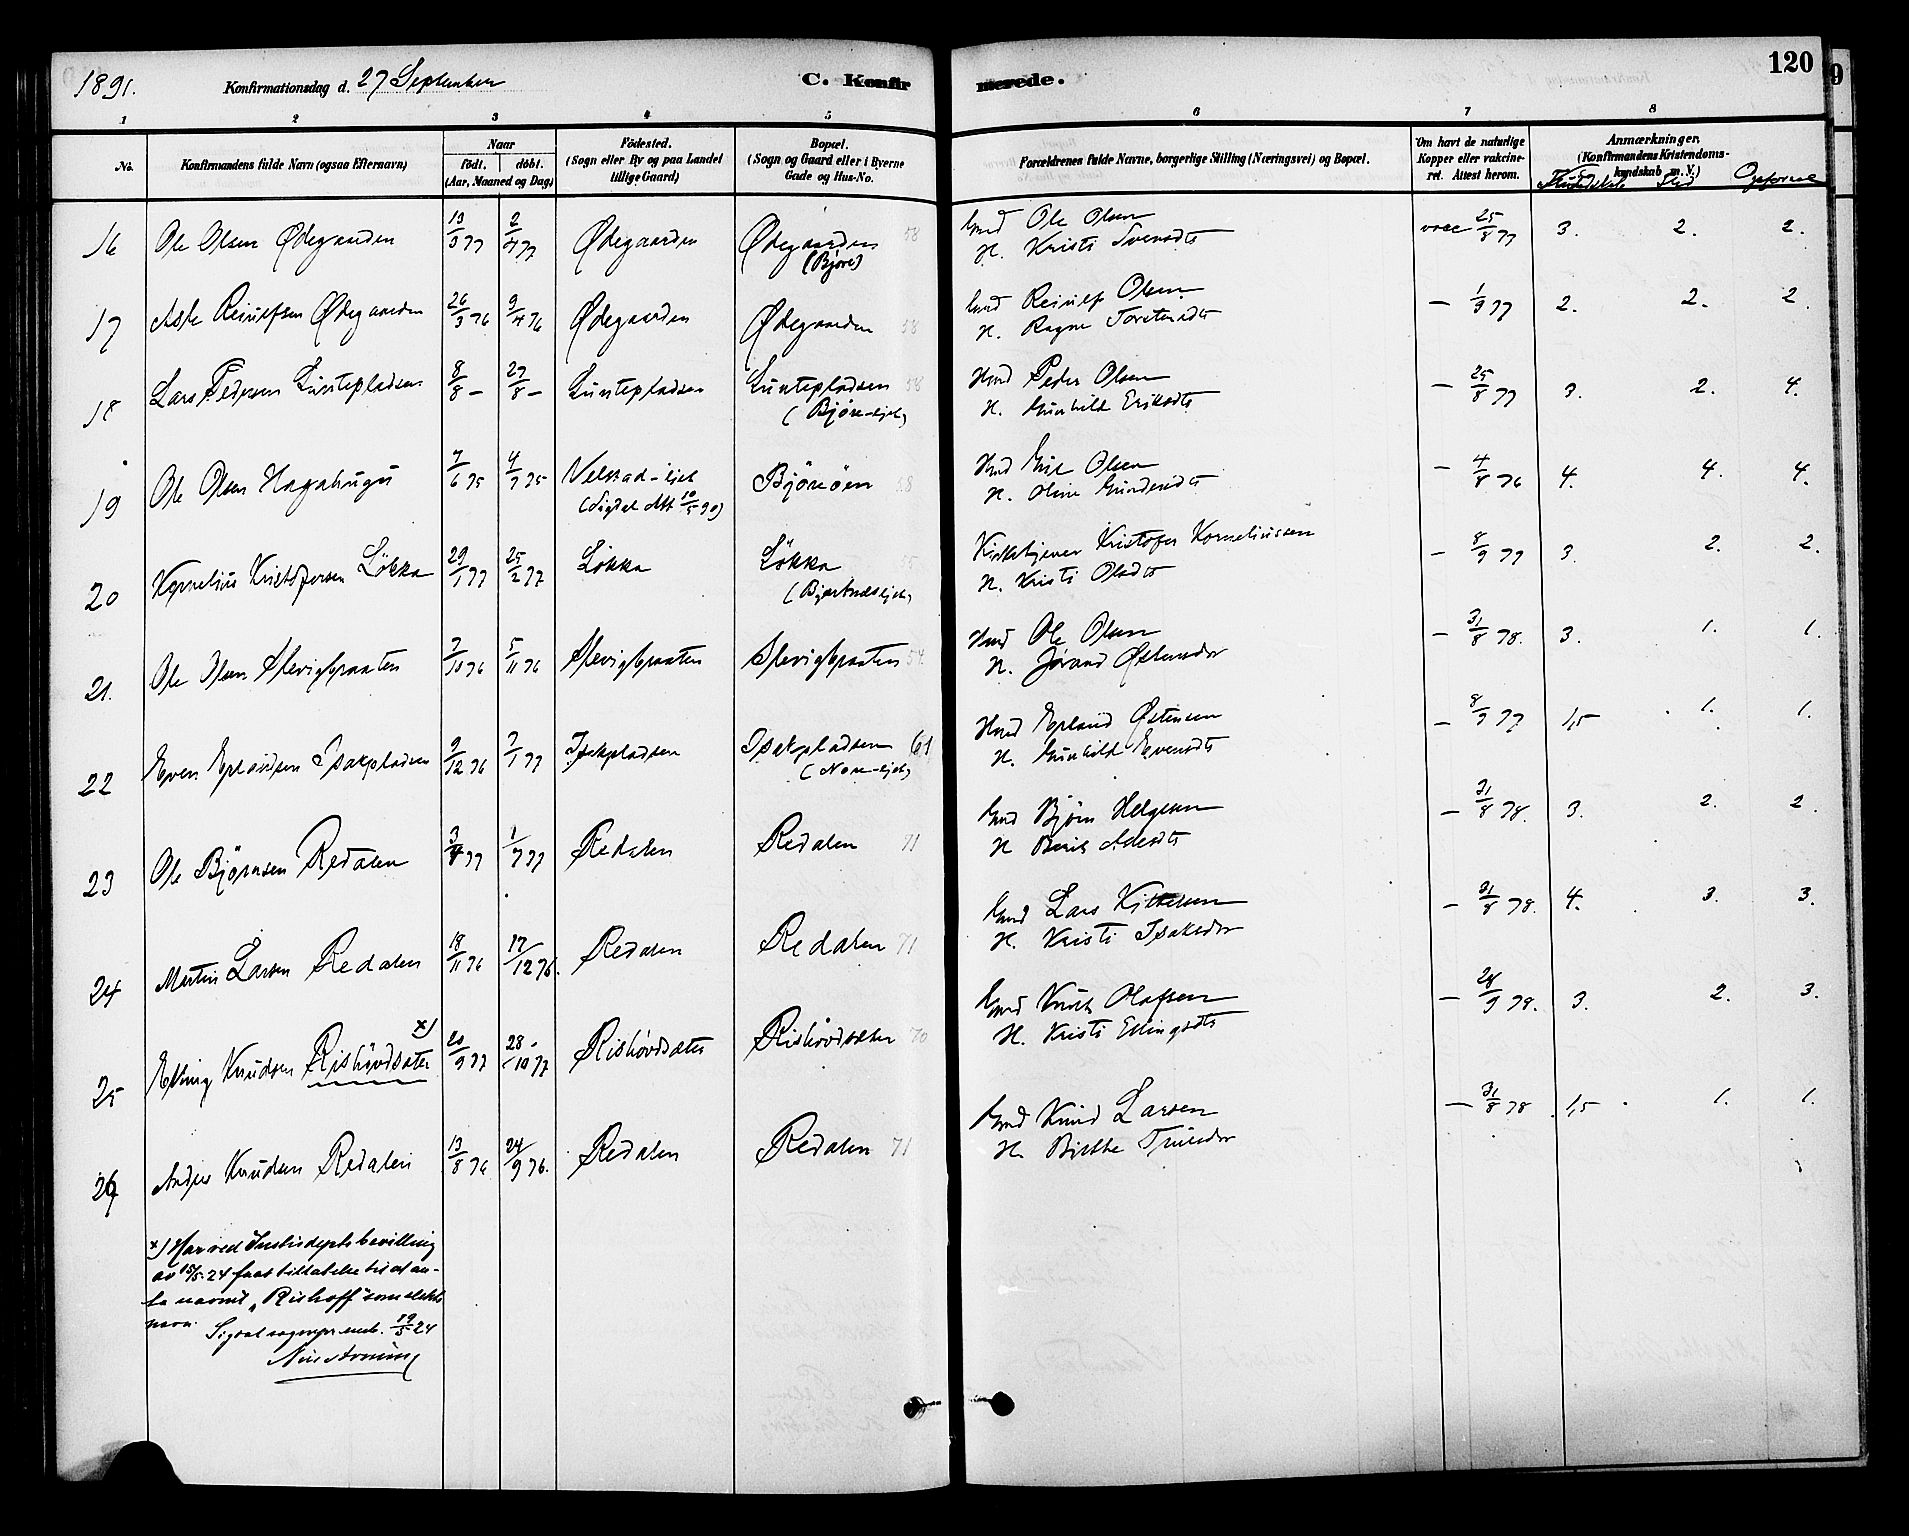 1891. Konfirmationsdag d. 27 September C. Konfirmerede. 120
1 2 3 4 5 6 7 8
No. Konfirmandens fulde Navn (ogsaa Efternavn) Naar Födt. döbt. (Aar, Maaned og Dag) Födested. (Sogn eller By og paa Landet tillige Gaard) Bopæl. (Sogn og Gaard eller i Byerne Gade og Hus-No. Forældrenes fulde Navne, borgerlige Stilling (Næringsvei) og Bopæl. Om havt de naturlige Kopper eller vakcineret. Attest herom. Anmærkninger. (Konfirmandens Kristendomskundskab m. V.) Kundskab Flid Opförsel
16 Ole Olsen Ødegaarden 13/3 77 2/4 77 Ødegaarden Ødegaarden 58 Gmd Ole Olsen vacc 25/8 77 3. 2. 2.
(Bjøre) H. Kristi Svensdtr
17 Asle Reiulfsen Ødegaarden 26/3 76 9/4 76 Ødegaarden Ødegaarden 58 Gmd Reiulf Olsen — 1/9 77 2. 2. 2.
H. Ragne Torstensdtr
18 Lars Pedersen Luntepladsen 8/8 – 27/8 – Luntepladsen Luntepladsen 58 Hmd Peder Olsen — 25/8 77 3. 2. 4.
(Bjøre-ejet) H. Gunhild Eriksdtr
19 Ole Olsen Hagahugu 7/6 75 4/7 75 Velstad-ejet Bjøreøen 58 Hmd Ole Olsen — 4/8 76 4. 4. 4.
(Sigdal Att 10/5 90) H. Oline Gundersdtr
20 Kornelius Kristofersen Lökka 29/1 77 25/2 77 Lökka Lökka Kirketjener Kristofer Korneliussen — 8/9 77 3. 2. 2.
(Bjertnesejet) H. Kristi Olsdtr
21. Ole Olsen Slevigbraaten 7/10 76 5/11 76 Slevigbraaten Slevigbraaten 54 Hmd Ole Olsen — 31/8 78. 3. 1. 1.
H. Jørand Østensdtr
22 Even Erlandsen Isakpladsen 9/12 76 7/1 77 Isakpladsen Isakpladsen 61 Hmd Erland Østensen — 8/9 77 1,5 1. 1.
(Nore-ejet) H. Gunhild Evensdtr
23 Ole Bjørnsen Redalen 3/4 77 1/7 77 Redalen Redalen 71 Gmd Bjørn Helgesen — 31/8 78. 3. 2. 2.
H Berit Asledtr
24 Martin Larsen Redalen 18/11 76 17/12 76. Redalen Redalen 71 Gmd Lars Kittelsen — 31/8 78. 4. 3. 3.
H. Kristi Isaksdtr
25 Elling Knudsen Rishövdsæter x) 20/9 77 28/10 77 Rishövdsæter Rishövdsæter 70 Gmd Knut Olafsen — 28/9 78. 3. 2. 3.
H. Kristi Ellingsdtr
26 Anders Knudsen Redalen 13/8 76 24/9 76. Redalen Redalen 71 Gmd Knud Larsen — 31/8 78 1,5 1. 1.
H. Birthe Truesdtr
x) Har ved Justisdepts bevilling
av 15/5-24 faat tillatelse til at an-
ta navnet "Rishoff" som slekts
navn. Sigdal sognepremb. 19/5 24